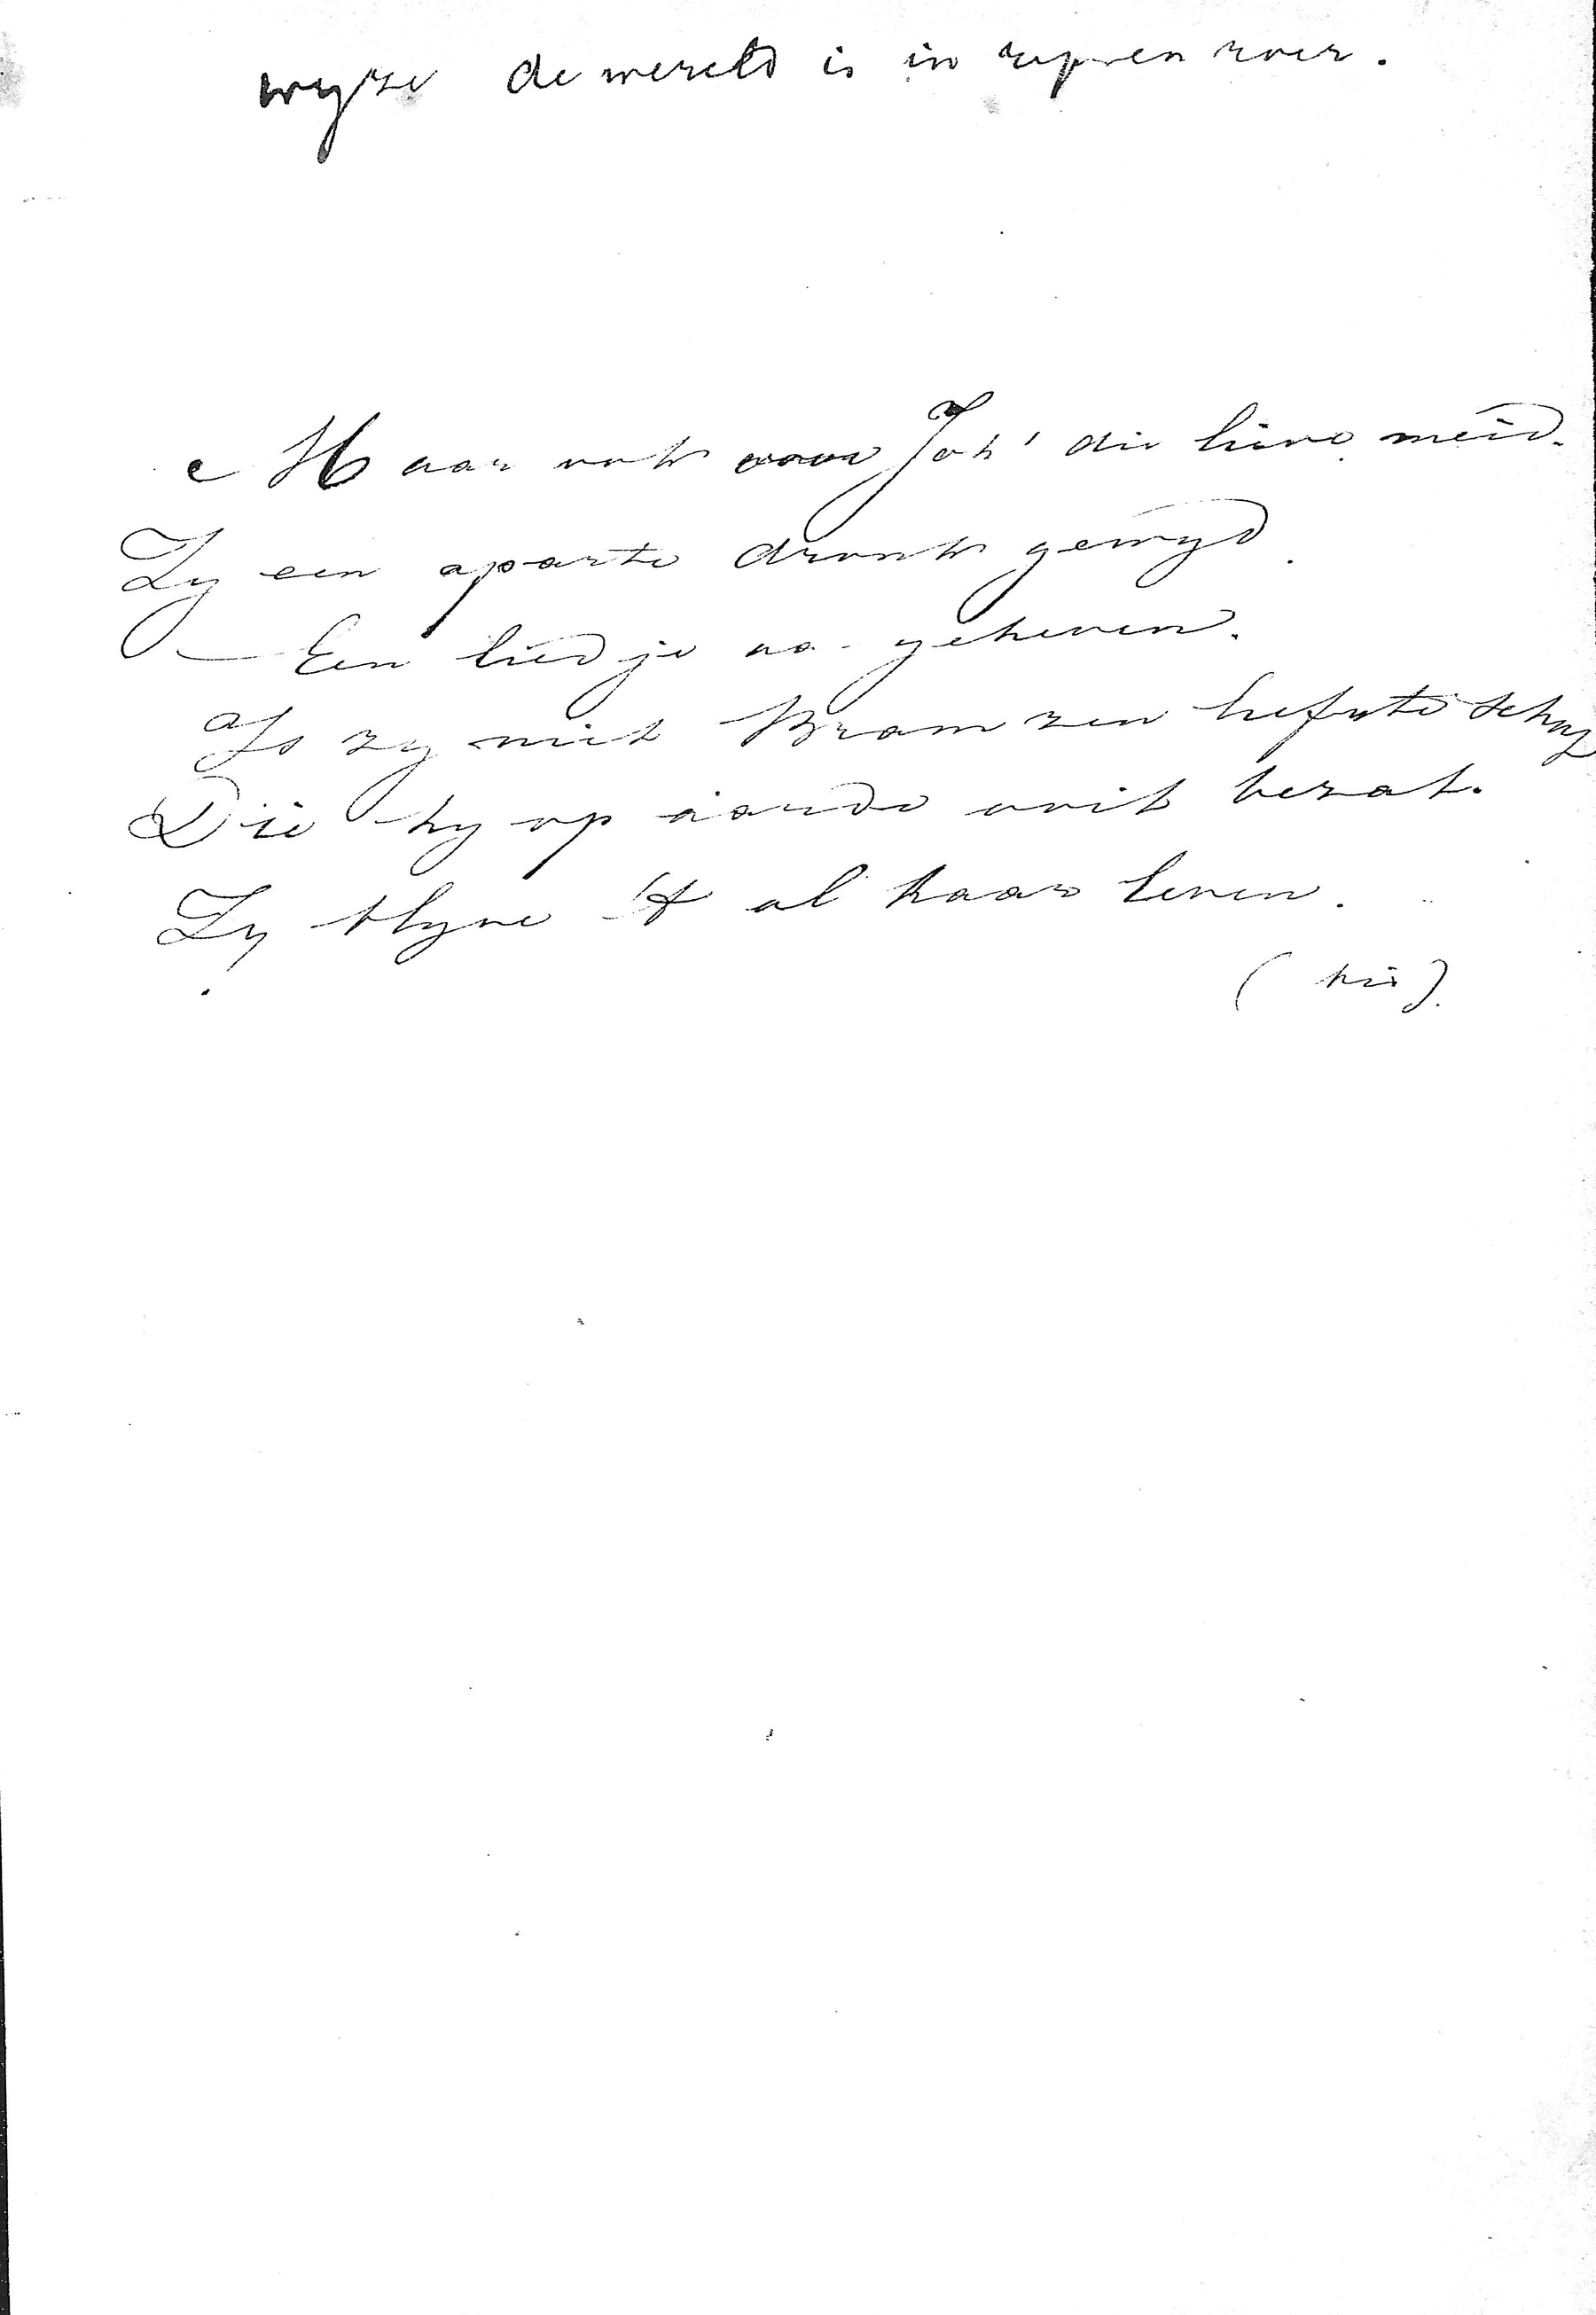 wyze de wereld is in rep en roer.
Maar ook voor Joh' die lieve meid.
Zy een aparte dronk gewyd.
Een liedje aa-geheven.
Is zy niet Bram zen liefste schat
Die hy op aarde ooit bezat.
Zy blyve 't al haar leven.
(bis).